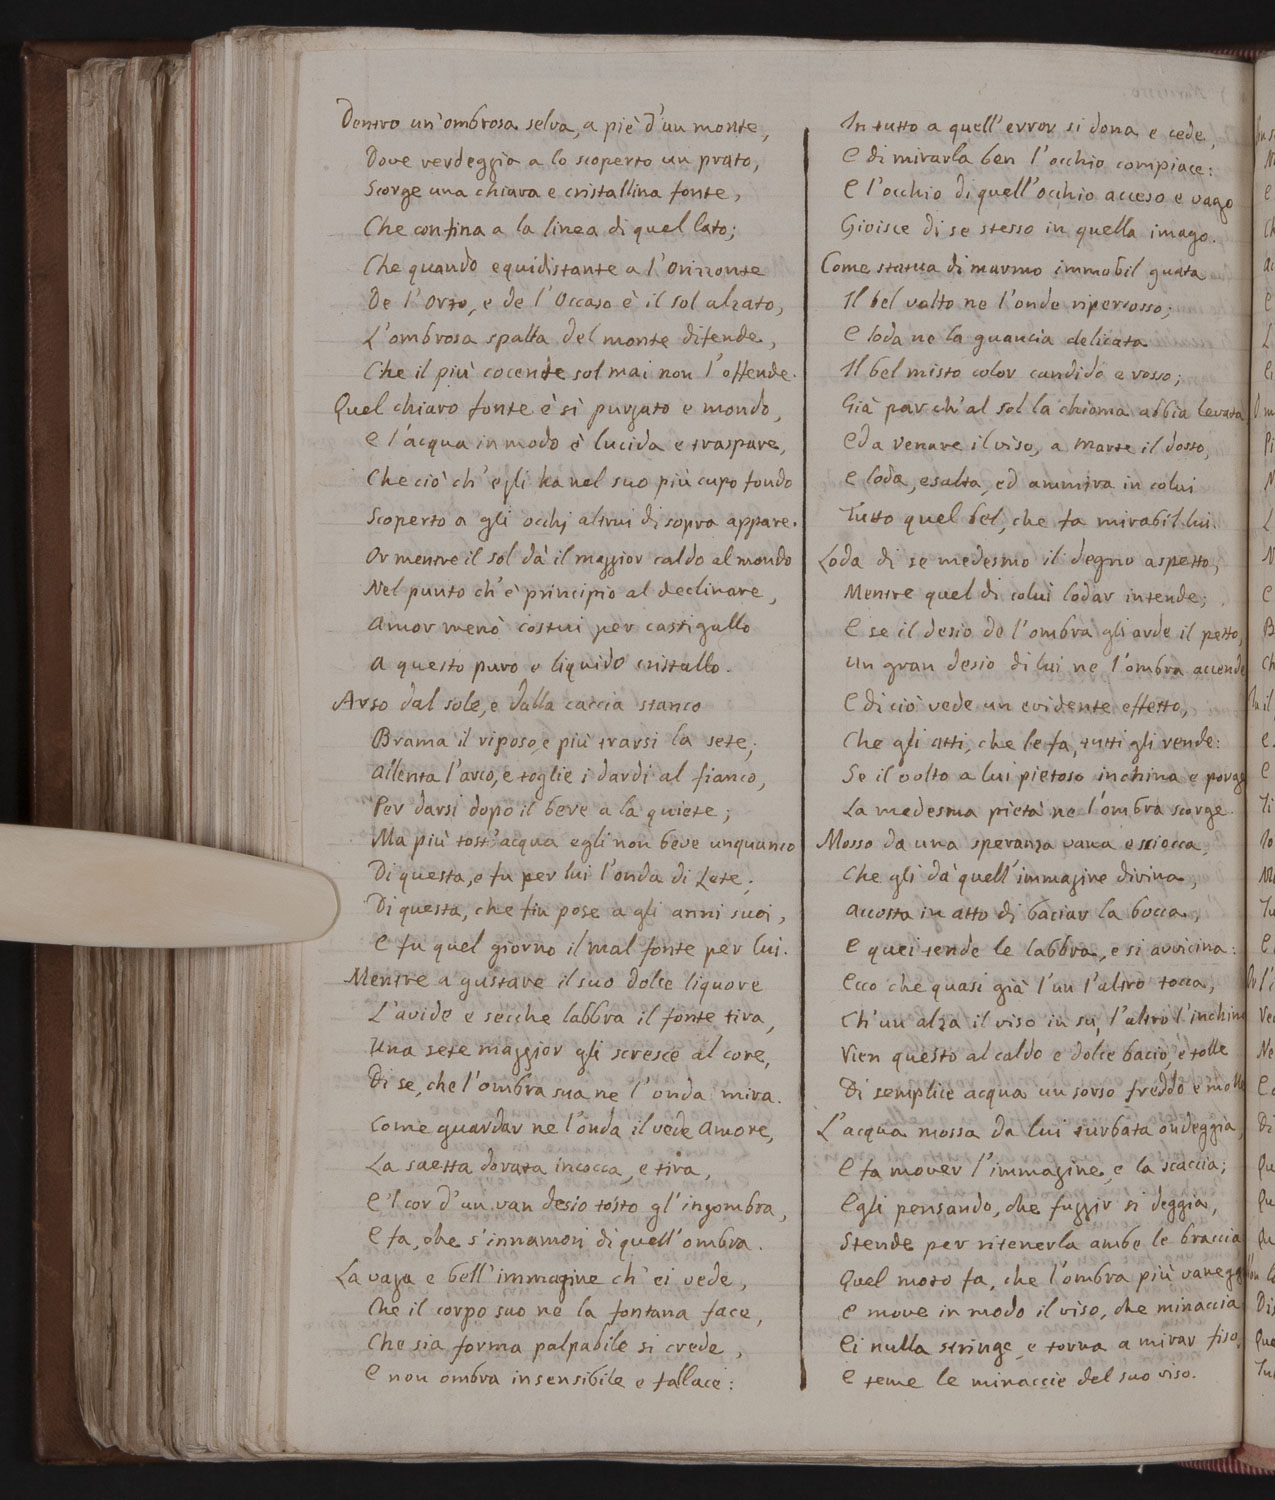 Dentro un'ombrosa selva, a piè d'un monte,
Dove verdeggia a lo scoperto un prato,
Scorge una chiara e cristallina fonte,
Che confina a la linea di quel lato;
Che quando equidistante a l'Orizzonte
De l'Orto, e de l'Occaso è il sol alzato,
L'ombrosa spalla del monte difende,
Che il più cocente sol mai non l'offende.
Quel chiaro fonte è sì purgato e mondo,
E l'acqua in modo è lucida e traspare,
Che ciò ch'egli ha nel suo più cupo fondo
Scoperto a gli occhj altrui di sopra appare.
Or mentre il sol dà il maggior caldo al mondo
Nel punto ch'è principio al declinare,
Amor menò costui per castigallo
A questo puro e liquido cristallo.
Arso dal sole, e dalla caccia stanco
Brama il riposo, e più trarsi la sete;
Allenta l'arco, e toglie i dardi al fianco,
Per darsi dopo il bere a la quiete;
Ma più tost'acqua egli non beve unquanco
Di questa, e fu per lui l'onda di Lete;
Di questa, che fin pose a gli anni suoi,
E fu quel giorno il mal fonte per lui.
Mentre a gustare il suo dolce liquore
L'avide e secche labbra il fonte tira,
Una sete maggior gli scresce al core,
Di se, che l'ombra sua ne l'onda mira.
Come guardar ne l'onda il vede Amore,
La saetta dorata incocca, e tira,
E 'l cor d'un van desio tosto gl'ingombra,
E fa, che s'innamori di quell'ombra.
La vaga e bell'immagine ch'ei vede,
Che il corpo suo ne la fontana face,
Che sia forma palpabile si crede,
E non ombra insensibile e fallace:
In tutto a quell'error si dona e cede,
E di mirarla ben l'occhio compiace:
E l'occhio di quell'occhio acceso e vago
Gioisce di se stesso in quella imago.
Come statua di marmo immobil guata
Il bel volto ne l'onde ripercosso;
E loda ne la guancia delicata
Il bel misto color candido e rosso;
Già par ch'al sol la chioma abbia levata
E da Venere il viso, a Marte il dosso,
E loda, esalta, ed ammira in colui
Tutto quel bel, che fa mirabil lui.
Loda di se medesmo il degno aspetto,
Mentre quel di colui lodar intende;
E se il desio de l'ombra gli arde il petto,
Un gran desio di lui ne l'ombra accende
E di ciò vede un evidente effetto,
Che gli atti, che le fa, tutti gli rende:
Se il volto a lui pietoso inchina e porge
La medesma pietà ne l'ombra scorge.
Mosso da una speranza vana e sciocca,
Che gli dà quell'immagine divina,
Accosta in atto di baciar la bocca,
E quei tende le labbra, e si avvicina:
Ecco che quasi già l'un l'altro tocca,
Ch'un alza il viso in su, l'altro l'inchina
Vien questo al caldo e dolce bacio, e tolle
Di semplice acqua un sorso freddo e molle
L'acqua mossa da lui turbata ondeggia,
E fa mover l'immagine, e la scaccia;
Egli pensando, che fuggir si deggia,
Stende per ritenerla ambe le braccia
Quel moto fa, che l'ombra più
E move in modo il viso, che minaccia
Ei nulla stringe, e torna a mirar fiso,
E teme le minaccie del suo viso.